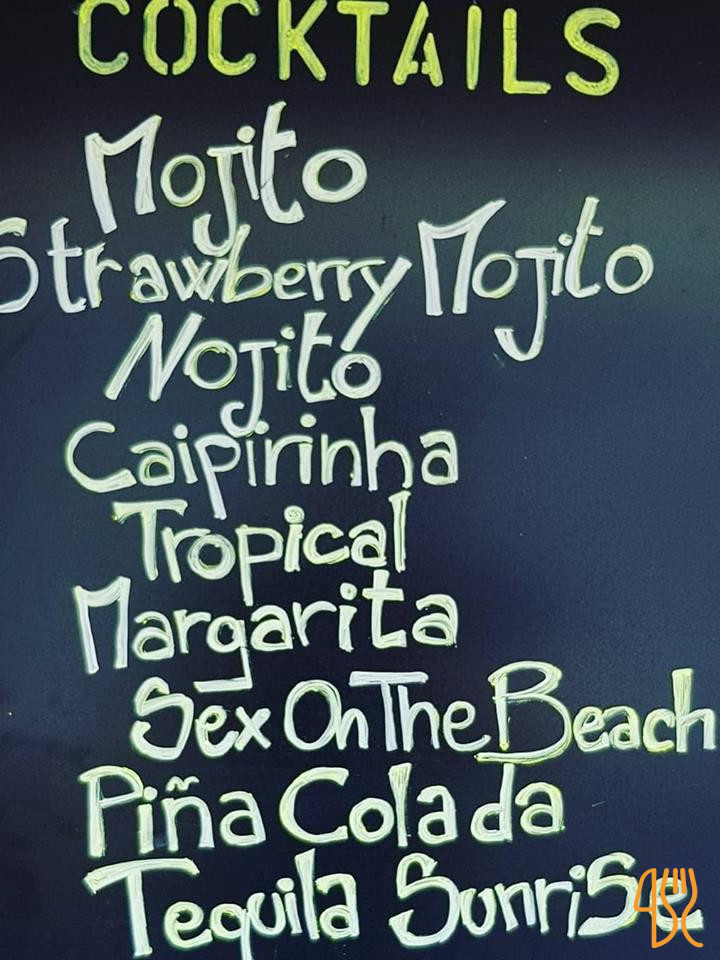 COCKTAILS
Mojito
Strawberry Mojito
Nojito
Caipirinha
Tropical
Margarita
Sex On The Beach
Piña Colada
Tequila Sunrise